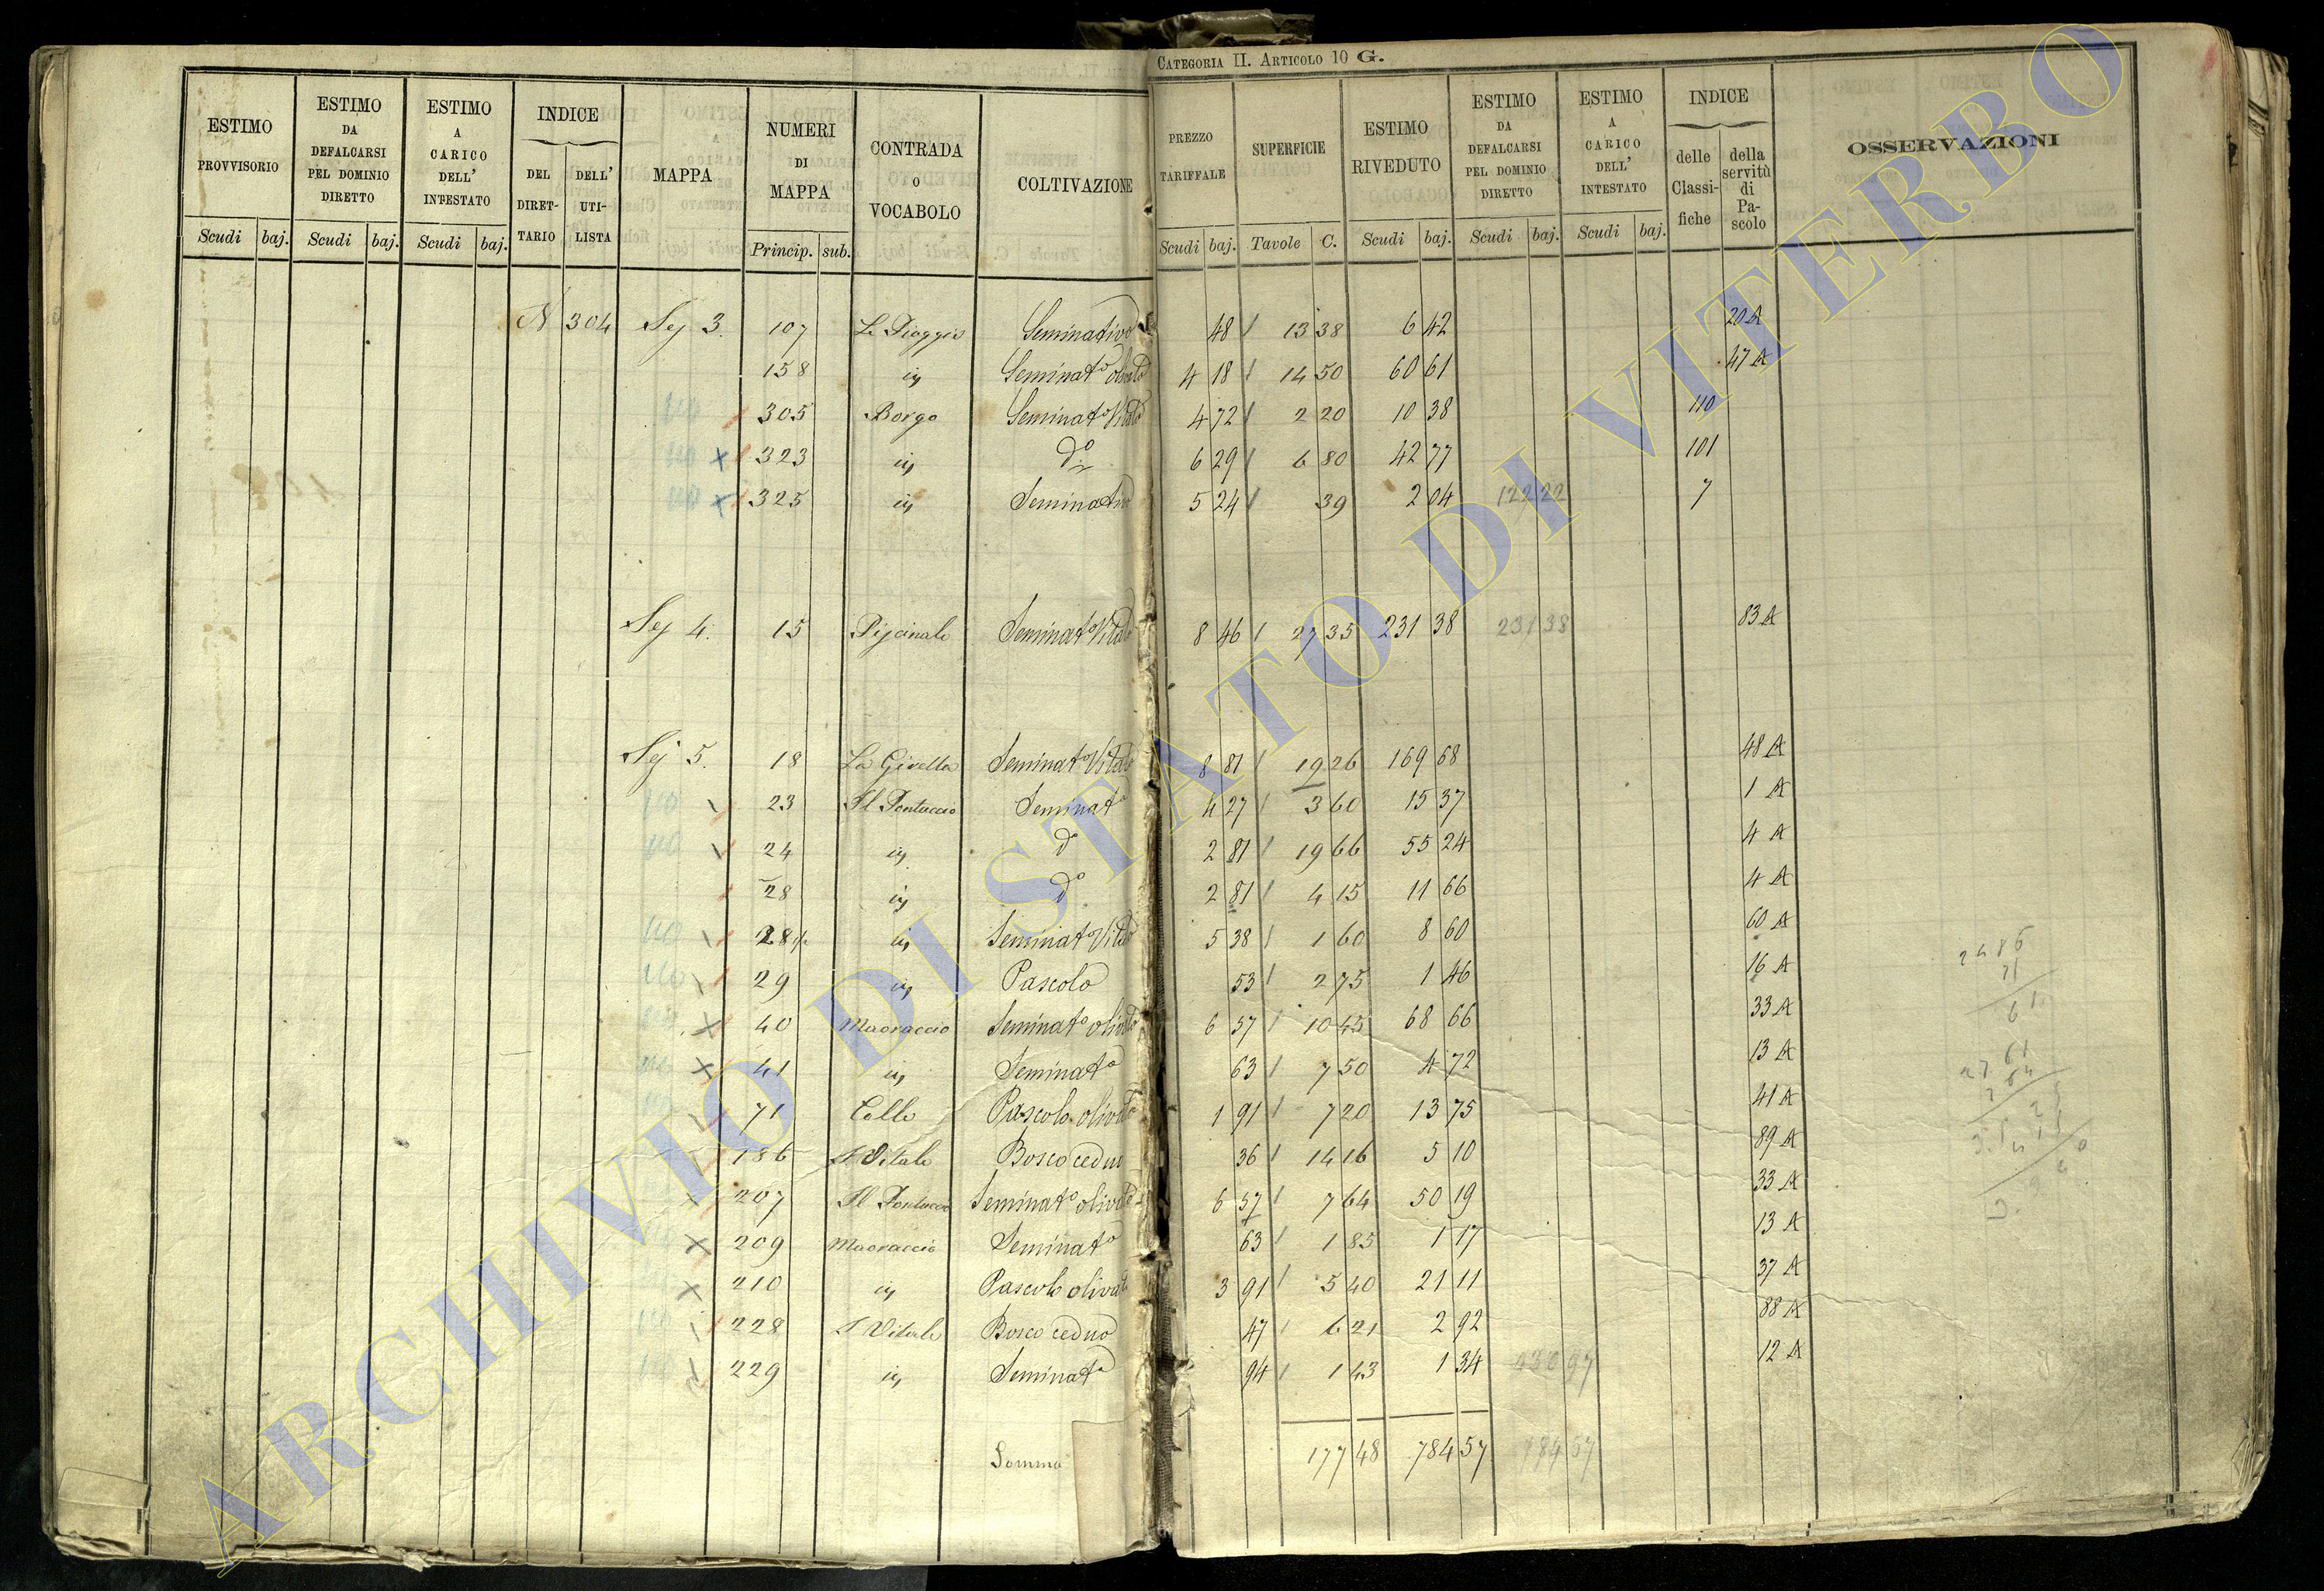 CATEGORIA II. ARTICOLO 10 G.
ESTIMO PROVVISORIO
ESTIMO DA DEFALCARSI PEL DOMINIO DIRETTO
ESTIMO A CARICO DELL' INTESTATO
INDICE
DEL DIRETTARIO
DELL' UTILISTA
MAPPA
NUMERI DI MAPPA
CONTRADA O VOCABOLO
COLTIVAZIONE
PREZZO TARIFFALE
SUPERFICIE
ESTIMO RIVEDUTO
ESTIMO DA DEFALCARSI PEL DOMINIO DIRETTO
ESTIMO A CARICO DELL' INTESTATO
INDICE
delle Classifiche
della servitù di Pascolo
OSSERVAZIONI
Scudi baj. Scudi baj. Scudi baj. Princip. sub. Scudi baj. Tavole C. Scudi baj. Scudi baj. Scudi baj.
N 304 Sez 3. 107 Seminativo 48 13 38 6 42 20 A
158 Seminato olivato 4 18 14 50 60 61 47 A
305 Borgo Seminato Vitato 4 72 2 20 10 38 110
323 do 6 29 6 80 42 77 101
325 Seminativo 5 24 39 2 04 122 22 7
Sez 4. 15 Piscinale Seminato Vitato 8 46 27 35 231 38 231 38 83 A
Sez 5. 18 Seminato Vitato 8 81 19 26 169 68 48 A
23 Il Pontuccio Seminato 4 27 3 60 15 37 1 A
24 do 2 81 19 66 55 24 4 A
28 do 2 81 4 15 11 66 4 A
28 Seminato Vitato 5 38 1 60 8 60 60 A
29 Pascolo 53 2 75 1 46 16 A
40 Maoraccio Seminato olivato 6 57 10 45 68 66 33 A
41 Seminato 63 7 50 4 72 13 A
71 Colle Pascolo olivato 1 91 7 20 13 75 41 A
186 S Vitale Bosco ceduo 36 14 16 5 10 89 A
207 Il Pontuccio Seminato olivato 6 57 7 64 50 19 33 A
209 Maoraccio Seminato 63 1 85 1 17 13 A
210 Pascolo olivato 3 91 5 40 21 11 37 A
228 S Vitale Bosco ceduo 47 6 21 2 92 88 A
229 Seminato 94 1 43 1 34 430 97 12 A
Somma 177 48 784 57 784 57
ARCHIVIO DI STATO DI VITERBO